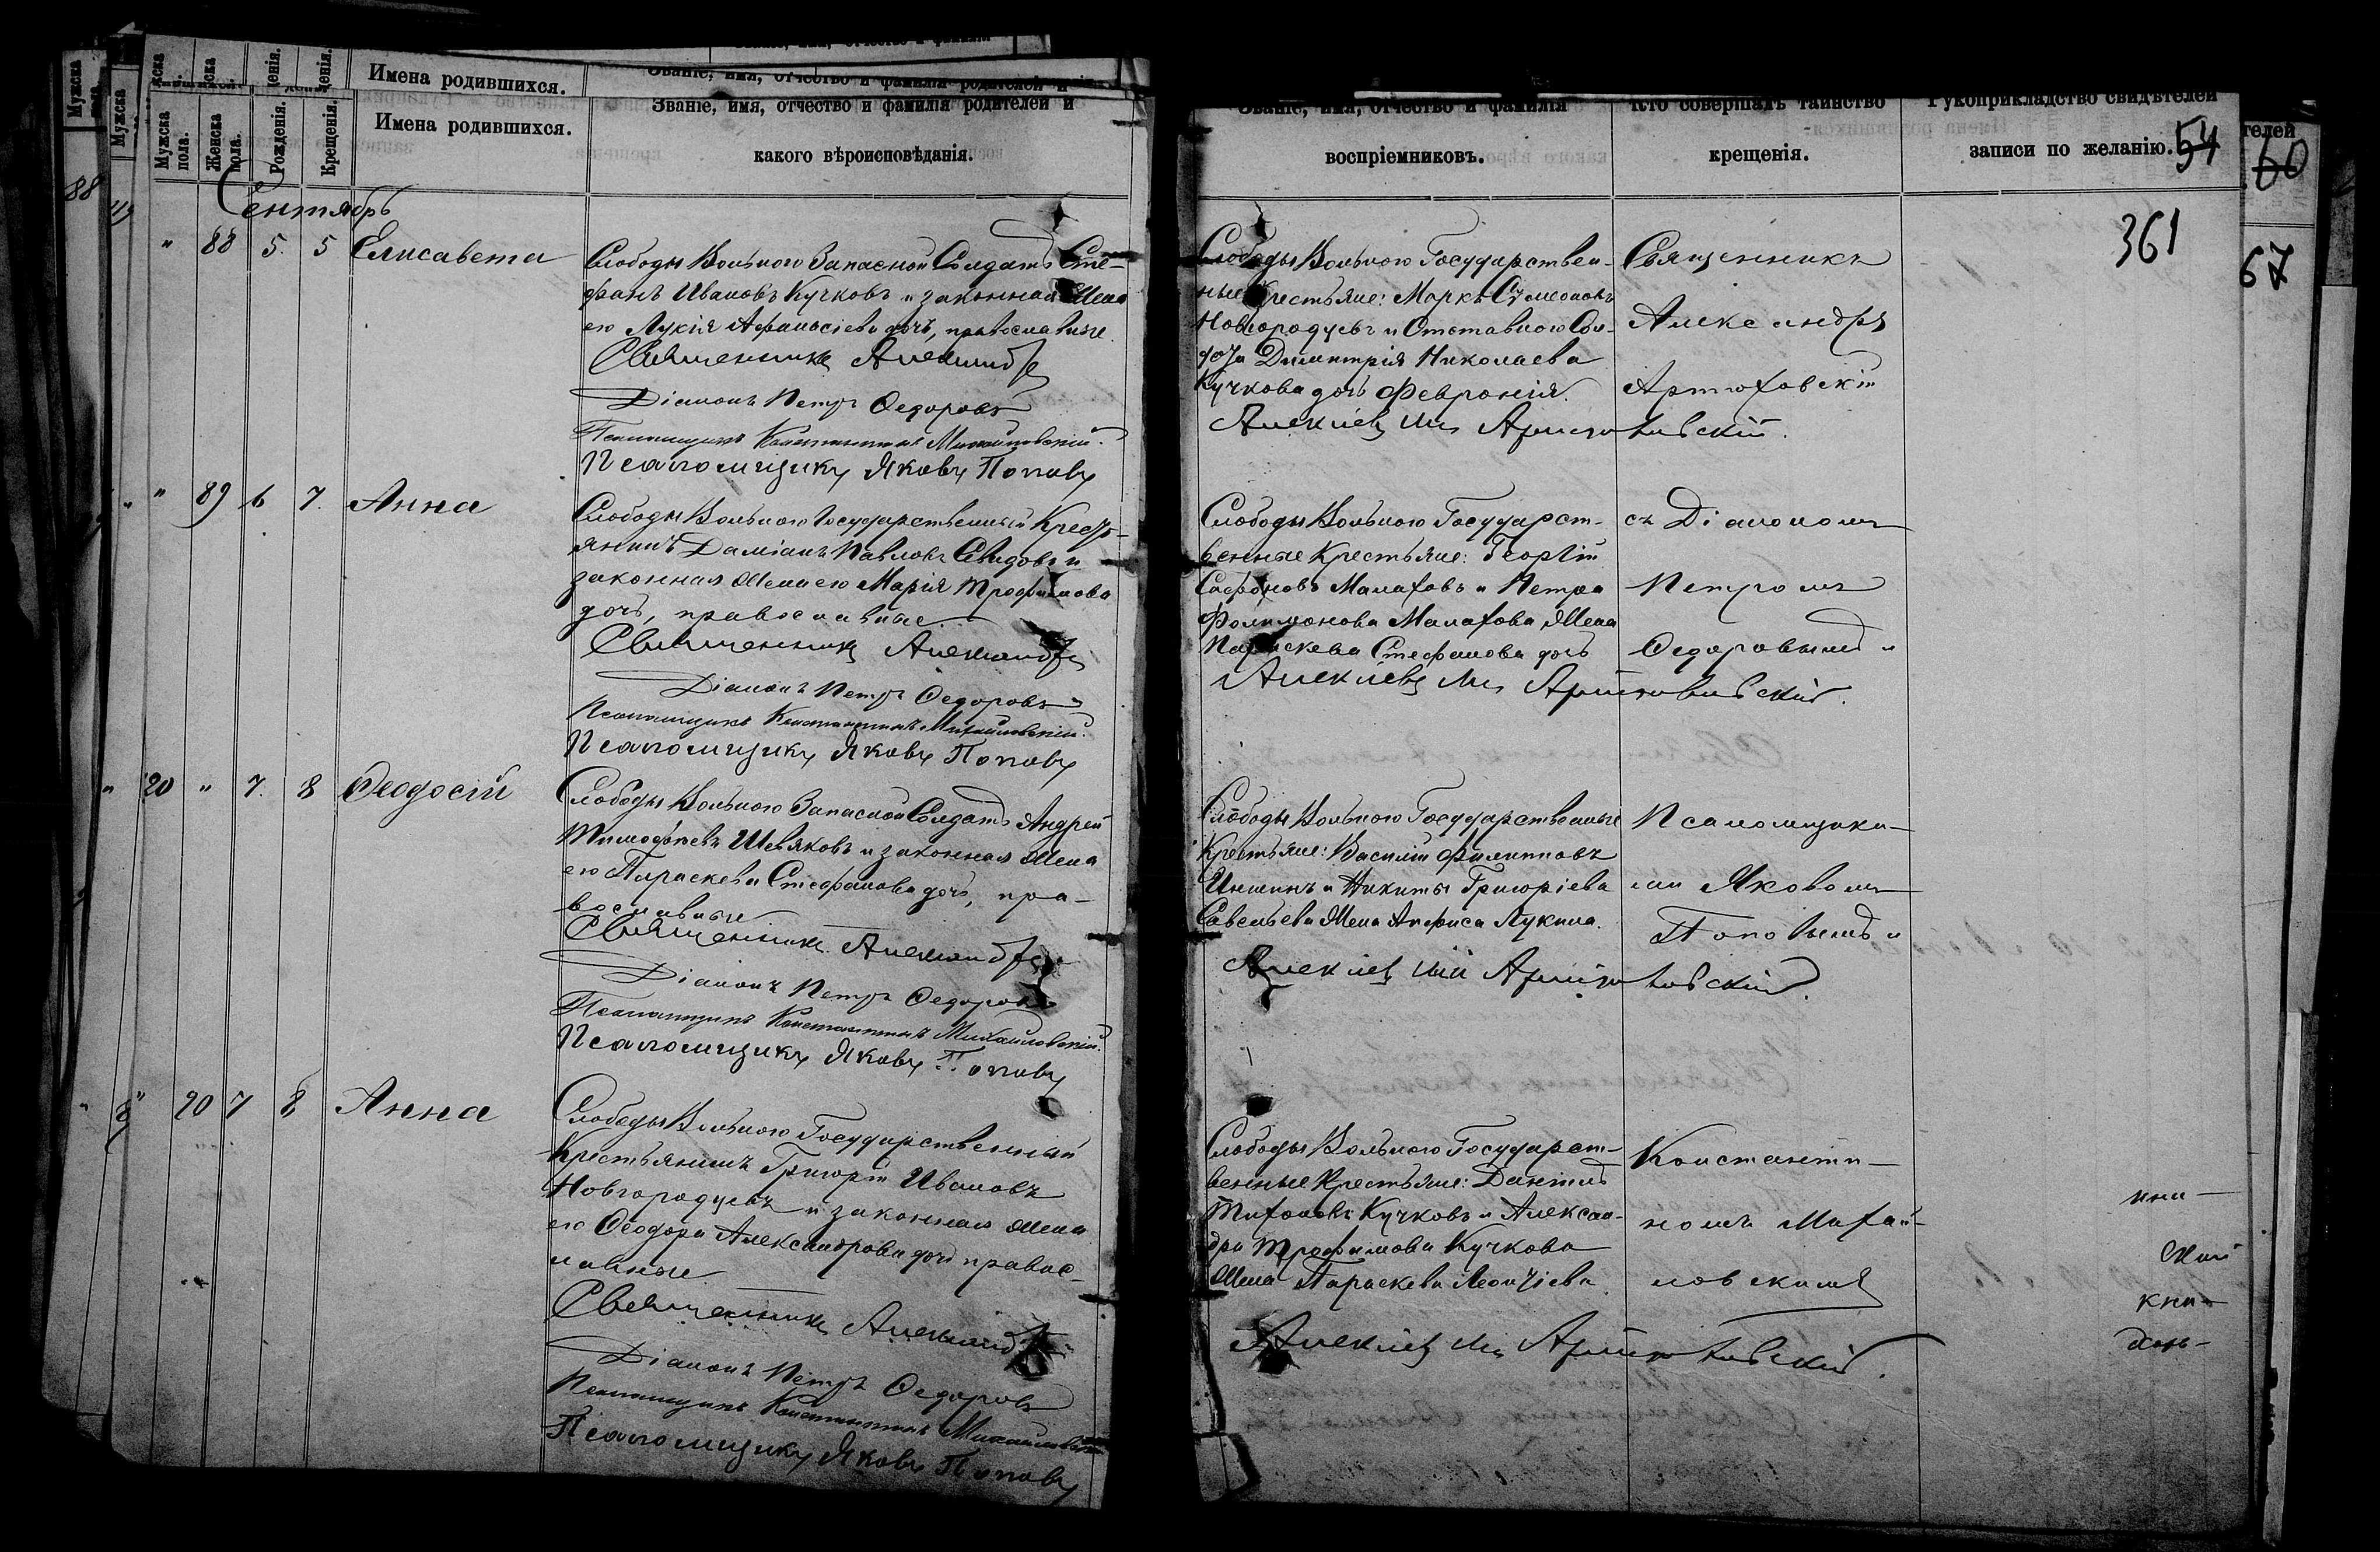 Имена родившихся.
Званіе, имя, отчество и фамилія родителей и
какого вѣроисповѣданія.
Мужска пола.
Женска пола.
Рожденія.
Крещенія.
Званіе, имя, отчество и фамилія
воспріемниковъ.
Кто совершалъ таинство
крещенія.
Рукоприкладство свидѣтелей
записи по желанію.
54
60
361
67
88
Сентябрь
" 88 5. 5 Елисавета
Слободы Вольного Запасной Солдатъ Сте-
фанъ Ивановъ Кучковъ и законная Жена
его Лукія Афанасіева дочь, православные.
Священникъ Александръ
Діаконъ Петръ Федоровъ
Псаломщикъ Константинъ Михайловскій.
Псаломщикъ Яковъ Поповъ
Слободы Вольного Государствен-
ные Крестьяне: Маркъ Сѵмеоновъ
Новгородцевъ и Отставного Сол-
дата Димитрія Николаева
Кучкова дочь Февронія.
Священникъ
Александръ
Артюховскій
" 89 6 7. Анна
Слободы Вольного Государственный Кресть-
янинъ Даміанъ Павловъ и
законная Жена его Марія Трофимова
дочь, православные.
Священникъ Александръ
Діаконъ Петръ Федоровъ
Псаломщикъ Константинъ Михайловскій.
Псаломщикъ Яковъ Поповъ
Слободы Вольного Государст-
венные Крестьяне: Георгій
Сафоновъ Малаховъ и Петра
Филимонова Малахова Жена
Параскева Стефанова дочь
съ Діакономъ
Петромъ
Федоровымъ и
" 20 " 7. 8 Феодосій
Слободы Вольного Запасной Солдатъ Андрей
Тимофеевъ Шевяковъ и законная Жена
его Параскева Стефанова дочь, пра-
вославные
Священникъ Александръ
Діаконъ Петръ Федоровъ
Псаломщикъ Константинъ Михайловскій.
Псаломщикъ Яковъ Поповъ
Слободы Вольного Государственные
Крестьяне: Василій Филипповъ
и Никиты Григоріева
Савельева Жена Анфиса Лукина.
Псаломщика-
ми Яковомъ
Поповымъ и
" 90 7 8 Анна
Слободы Вольного Государственный
Крестьянинъ Григорій Ивановъ
Новгородцевъ и законная Жена
его Феодора Александрова дочь правос-
лавные.
Священникъ Александръ
Діаконъ Петръ Федоровъ
Псаломщикъ Константинъ Михайловскій
Псаломщикъ Яковъ Поповъ
Слободы Вольного Государст-
венные Крестьяне: Даніилъ
Тихоновъ Кучковъ и Алексан-
дра Трофимова Кучкова
Жена Параскева Леонтіева.
Константи-
номъ Михай-
ловскимъ